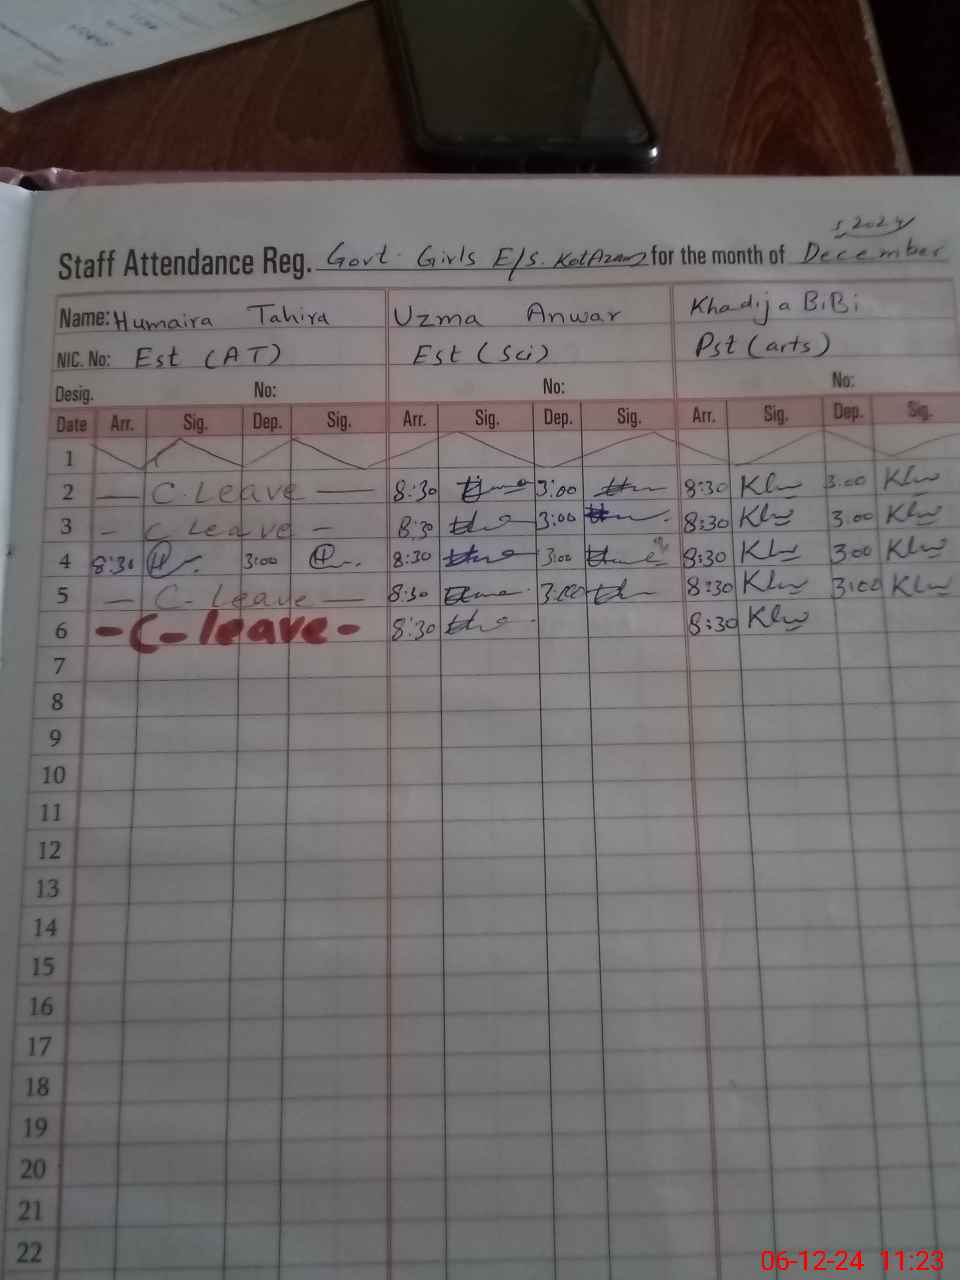 , 2024
Staff Attendance Reg. Govt. Girls E/S. KotAzam for the month of December
Name: Humaira Tahira Uzma Anwar Khadija BiBi
NIC. No: Est (AT) Est (Sci) Pst (arts)
Desig. No: No: No:
Date Arr. Sig. Dep. Sig. Arr. Sig. Dep. Sig. Arr. Sig. Dep. Sig.
1
2 — C. Leave — 8:30 3:00 8:30 3:00
3 – C Leave – 8:30 3:00 8:30 3.00
4 8:30 3:00 8:30 3:00 8:30 3:00
5 — C- Leave — 8:30 3:00 8:30 3:00
6 - C- leave - 8:30 8:30
7
8
9
10
11
12
13
14
15
16
17
18
19
20
21
22
06-12-24 11:23